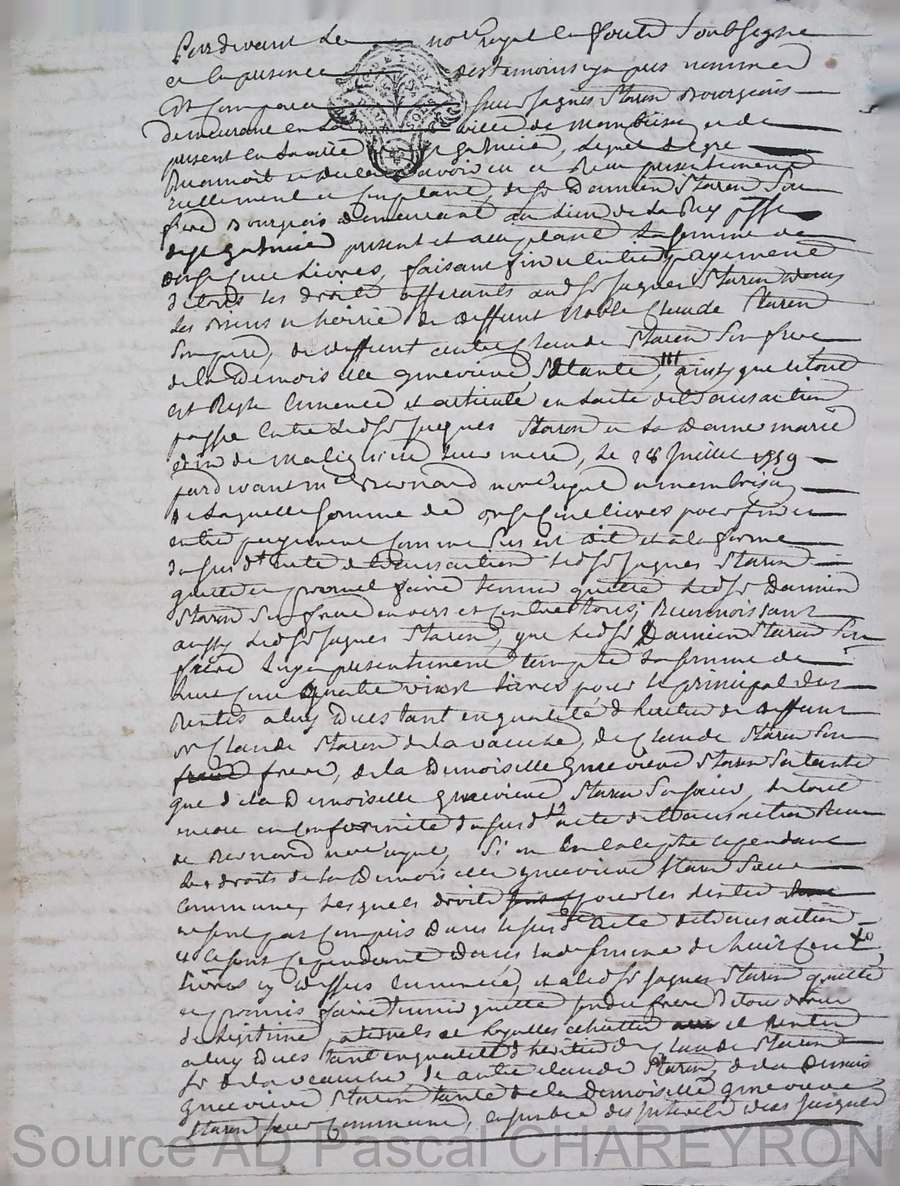 Pardevant Le notre royal en forest soubsigné
et en presence des temoins cy apres nommés
Est comparu sieur Jaques Staron Bourgeois
demeurant en la ville de Monbrison et de
present en la ville de st galmier, lequel de gre
Reconnoit et declare avoir eu et Receu presentement
reellement et comptant de sr Damien Staron son
frere Bourgeois demeurant au lieu de la Rey psse
de st galmier present et acceptant la somme de
onze cent Livres, faisant fin et entier payement
de tous les droits afferants audt sr Jaques Staron dans
les Biens et hoirie de deffunt noble Claude Staron
son pere, de deffunt autre Claude Staron son frere
de la Demoiselle genevieve, sa tante, ainsy que le tout
est Reglé enoncé et articulé en l'acte de transaction
passé entre ledt sr Jacques Staron et la Dame marie
de Malignieu leur mere, le 28 Juillet 1759
pardevant me Bernard notre royal a monbrison
de laquelle somme de onze cent livres pour fin et
entier payement comme sus est dit et a la forme
du susdt acte de transaction ledt sr Jaques Staron
quitte et promet faire tenir quitte ledt sr Damien
Staron son frere envers et contre tous; Reconnoissant
aussy ledt sr Jaques Staron, que ledt sr Damien Staron son
frere luy a presentement compté la somme de
huit cent quatre vingt livres pour le principal des
Rentes a luy Dues tant en qualité d'heritier de deffunt
sr Claude Staron de la vauche, de Claude Staron son
frere, de la Demoiselle genevieve Staron sa tante
que de la Demoiselle genevieve Staron sa soeur, le tout
encore en conformité du susdt acte de transaction Receu
me Bernard notre royal, Si on en excepte cependant
les droits de la Demoiselle genevieve Staron soeur
commune, lesquels droits pour les rentes
ne sont pas compris dans le susdt acte de transaction
et le sont cependant dans lade somme de huit cent
livres cy dessus enoncée, et a ledt sr Jaques Staron quitté
et promis faire tenir quitte sondt frere de tous droits
de legitime paternels et et rentes
a luy Dues tant en qualité d'heritier de Claude Staron
sr de la vauche de autre Claude Staron, de la Demois
genevieve Staron tante de la demoiselle genevieve
Staron soeur commune, ensemble des interets des jusques
Source AD Pascal CHAREYRON